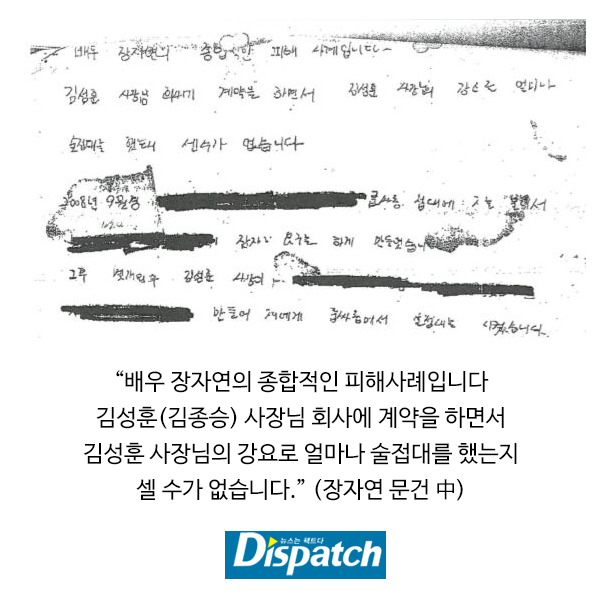 배우 장자연의 종합적인 피해 사례입니다
김성훈 사장님 회사에 계약을 하면서 김성훈 사장님의 강요로 얼마나
술접대를 했는지 셀수가 없습니다
2008년 9월경 룸싸롱 접대에 저를 불러서
잠자리 요구를 하게 만들었습니
그후 몇개월후 김성훈 사장이
만들어 저에게 룸싸롱에서 술접대를 시켰습니다.
“배우 장자연의 종합적인 피해사례입니다
김성훈(김종승) 사장님 회사에 계약을 하면서
김성훈 사장님의 강요로 얼마나 술접대를 했는지
셀 수가 없습니다.” (장자연 문건 中)
뉴스는 팩트다
Dispatch